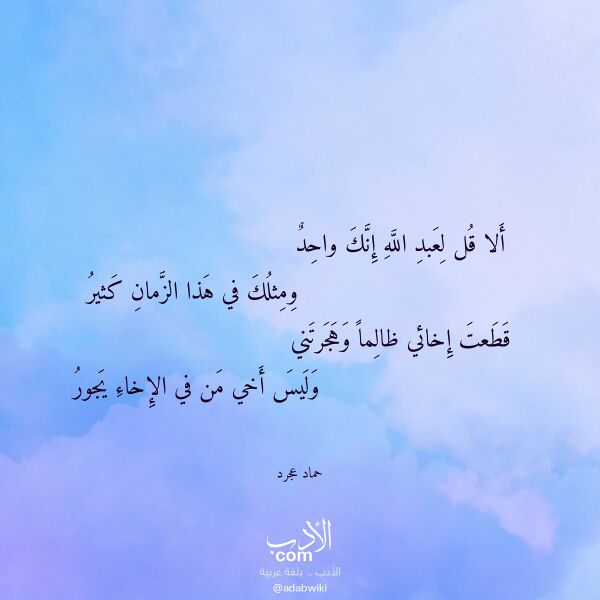 أَلا قُل لِعَبدِ اللَّهِ إِنَّكَ واحِدٌ
وِمِثلُكَ في هَذا الزَّمانِ كَثيرُ
قَطَعتَ إِخائي ظالِماً وَهَجَرتَني
وَلَيسَ أَخي مَن في الإِخاءِ يَجورُ
حماد عجرد
الأدب
com
الأدب .. بلغة عربية
@adabwiki